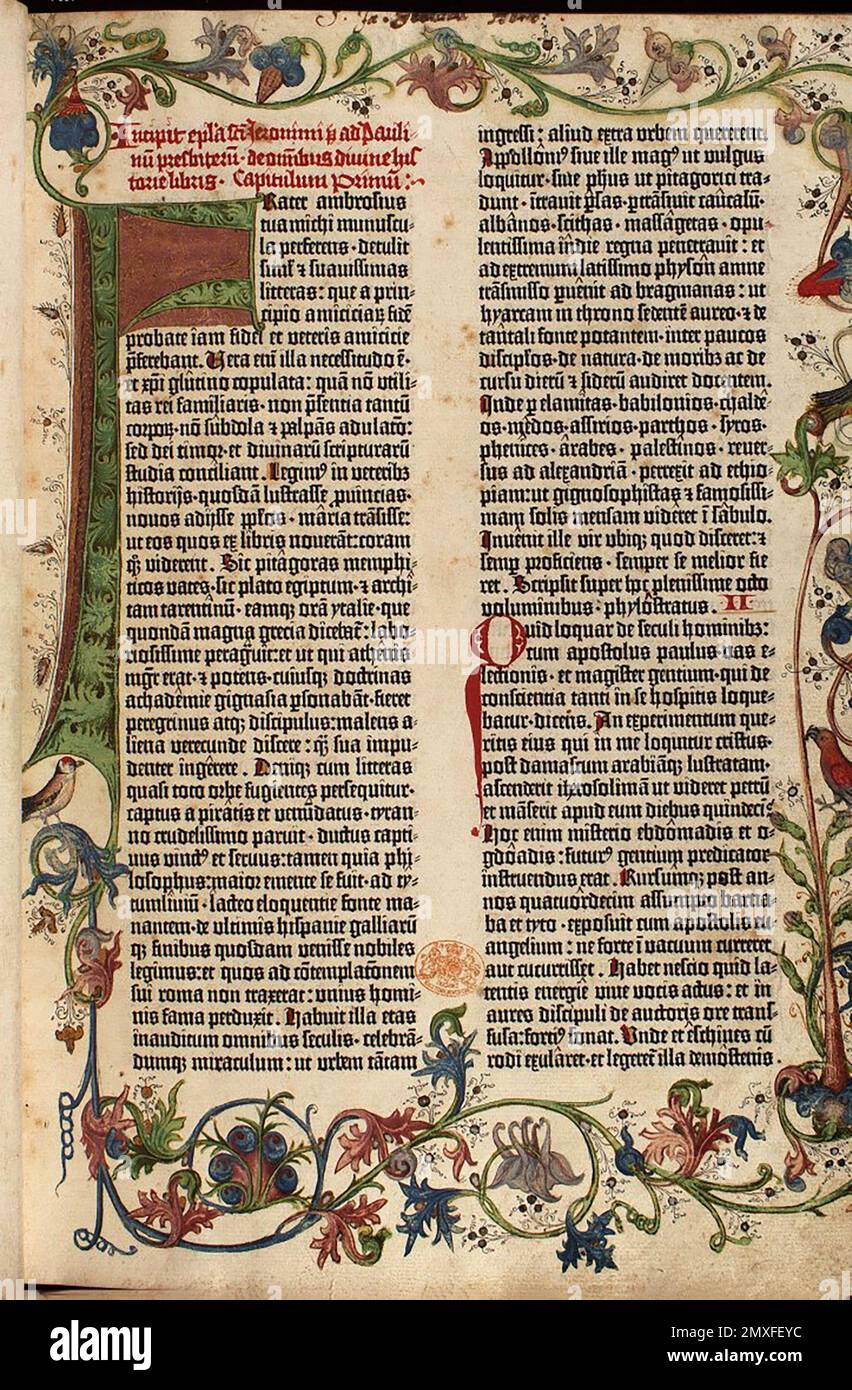 Incipit epl̃a sãcti Jeronimi p̃ ad Pauli-
nũ presbiterũ · de omnibus divine his
torie libris · Capitulum Primũ :·
FRater ambrosius
tua michi munuscu-
la perferens · detulit
simĺ ⁊ suauissimas
litteras : que a prin-
cipio amiciciaꝝ fidẽ
probate iam fidei et veteris amicicie
p̃ferebant. Vera em̃ illa necessitudo ẽ·
et xp̃i glutino copulata : quã nõ utili-
tas rei familiaris · non p̃sentia tantũ
corpoꝝ · nõ subdola ⁊ palpãs adulato͛ :
sed dei timor · et divinarũ scripturarũ
studia conciliant. Legimꝰ in veteribꝫ
historijs · quosdã lustrasse ꝓuincias·
nouos adijsse pp̃los · maria trãsisse :
ut eos quos ex libris nouerãt : coram
qꝫ viderent. Sic pitagoras memphi-
ticos vates · sic plato egiptum · ⁊ archi-
tam tarentinũ · eamqꝫ orã ytalie · que
quondã magna grecia dicebat͛ : labo-
riosissime peragrauit : et ut qui athenis
mgr̃ erat · ⁊ potens · cuiusqꝫ doctrinas
achademie gignasia ꝑsonabãt · fieret
peregrinus atqꝫ discipulus : malens a-
liena verecunde discere : qꝫ sua impu-
denter ingerere. Deniqꝫ cum litteras
quasi toto orbe fugientes persequitur·
captus a piratis et venũdatus · tyran-
no crudelissimo paruit · ductus capti-
uus vinctꝰ et seruus : tamen quia phi-
losophus : maior emente se fuit · ad ty-
tumliuiũ · lacteo eloquentie fonte ma-
nantem · de ultimis hispanie galliarũ
qꝫ finibus quosdam venisse nobiles
legimus : et quos ad cõtemplatõnem
sui roma non traxerat : vnius homi-
nis fama perduxit. Habuit illa etas
inauditum omnibus seculis · celebrã-
dumqꝫ miraculum : ut vrbem tãtam
ingressi : aliud extra vrbem quererent.
Appolloniꝰ siue ille magꝰ ut vulgus
loquitur · siue ph̃us ut pitagorici tra-
dunt · ĩtrauit ꝑsas · ꝑtrãsiuit caucasũ·
albanos · scithas · massagetas · opu-
lentissima ĩdie regna penetrauit : et
ad extremum latissimo physon amne
trãsmisso ꝑuenit ad bragmanas : ut
hyarcam in throno sedentẽ aureo · ⁊ de
tantali fonte potantem · inter paucos
discipl̃os · de natura · de moribꝫ ac de
cursu dierũ ⁊ siderũ audiret docentem.
Inde ꝑ elamitas · babilonios · chalde-
os · medos · assirios · parthos · syros·
phenices · arabes · palestinos · reuer-
sus ad alexandriã · perrexit ad ethio-
piam : ut gignosophistas ⁊ famosissi-
mam solis mensam videret ĩ sabulo.
Inuenit ille vir vbiqꝫ quod disceret : ⁊
semꝑ proficiens · semper se melior fie
ret. Scripsit super hoc plenissime octo
voluminibus · phylostratus. II
Quid loquar de seculi hominibꝫ :
cum apostolus paulus vas e-
lectionis · et magister gentium · qui de
conscientia tanti in se hospitis loque-
batur · dicens. An experimentum que-
ritis eius qui in me loquitur cristus·
post damascum arabiãqꝫ lustratam·
ascenderit iherosolimã ut videret petrũ
et mãserit apud eum diebus quindeci͛ :
Hoc enim misterio ebdomadis et o-
gdoadis : futurꝰ gentium predicator
instruendus erat. Rursumqꝫ post an-
nos quatuordecim assumpto barna-
ba et tyto · exposuit cum apostolis eu-
angelium : ne forte ĩ vacuum curreret
aut cucurrisset. Habet nescio quid la-
tentis energie viue vocis actus : et in
aures discipuli de auctoris ore trans-
fusa : fortiꝰ sonat. Vnde et eschines cũ
rodi exularet · et legeret͛ illa demostenis·
alamy
Image ID: 2MXFEYC
www.alamy.com